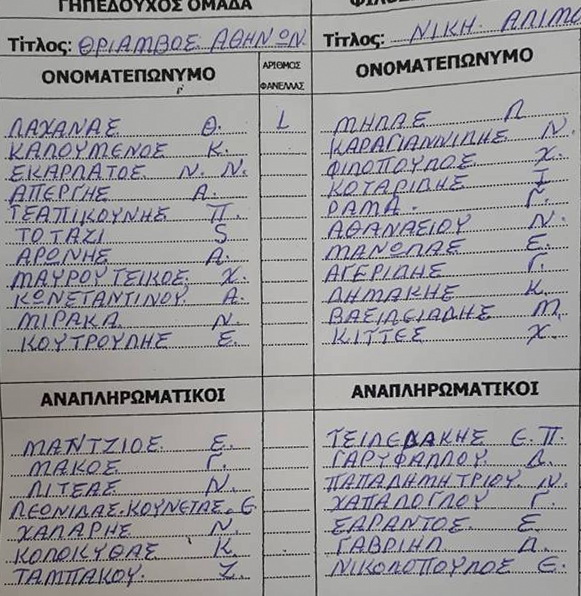 ΓΗΠΕΔΟΥΧΟΣ ΟΜΑΔΑ
Τίτλος: ΘΡΙΑΜΒΟΣ ΑΘΗΝΩΝ
ΟΝΟΜΑΤΕΠΩΝΥΜΟ
ΑΡΙΘΜΟΣ
ΦΑΝΕΛΛΑΣ
ΛΑΧΑΝΑΣ Θ. 1
ΚΑΛΟΥΜΕΝΟΣ Κ.
ΣΚΑΡΛΑΤΟΣ Ν. Ν.
ΑΠΕΡΓΗΣ Α.
ΤΣΑΠΙΚΟΥΝΗΣ Π.
ΤΟΤΑΣΙ S
ΑΡΩΝΗΣ Α.
ΜΑΥΡΟΥΤΣΙΚΟΣ Χ.
ΚΩΝΣΤΑΝΤΙΝΟΥ Α.
ΜΙΡΑΚΑ Ν.
ΚΟΥΤΡΟΥΛΗΣ Ε.
ΑΝΑΠΛΗΡΩΜΑΤΙΚΟΙ
ΜΑΝΤΖΙΟΣ Ε.
ΜΑΚΟΣ Γ.
ΛΙΤΣΑΣ Ν.
ΛΕΟΝΙΔΑΣ ΚΟΥΝΕΤΑΣ Ε
ΧΑΛΑΡΗΣ Ν.
ΚΟΛΟΚΥΘΑΣ Κ
ΤΑΜΠΑΚΟΥ Ζ.
Τίτλος: ΝΙΚΗ ΑΛΙΜΟ
ΟΝΟΜΑΤΕΠΩΝΥΜΟ
ΜΗΛΑΣ Λ
ΚΑΡΑΓΙΑΝΝΙΔΗΣ Ν.
ΦΙΛΟΠΟΥΛΟΣ Χ.
ΚΟΤΑΡΙΔΗΣ Ι
ΡΑΜΑ Γ.
ΑΘΑΝΑΣΙΟΥ Ν.
ΜΑΝΩΛΑΣ Ε.
ΑΓΕΡΙΔΗΣ Γ.
ΔΗΜΑΚΗΣ Κ.
ΒΑΣΙΛΕΙΑΔΗΣ Μ.
ΚΙΤΤΕΣ Χ.
ΑΝΑΠΛΗΡΩΜΑΤΙΚΟΙ
ΤΣΙΛΕΔΑΚΗΣ Ε.Π.
ΓΑΡΥΦΑΛΛΟΥ Δ.
ΠΑΠΑΔΗΜΗΤΡΙΟΥ Ν.
ΧΑΠΑΛΟΓΛΟΥ Γ.
ΣΑΡΑΝΤΟΣ Ε
ΓΑΒΡΙΗΛ Δ.
ΝΙΚΟΛΟΠΟΥΛΟΣ Ε.